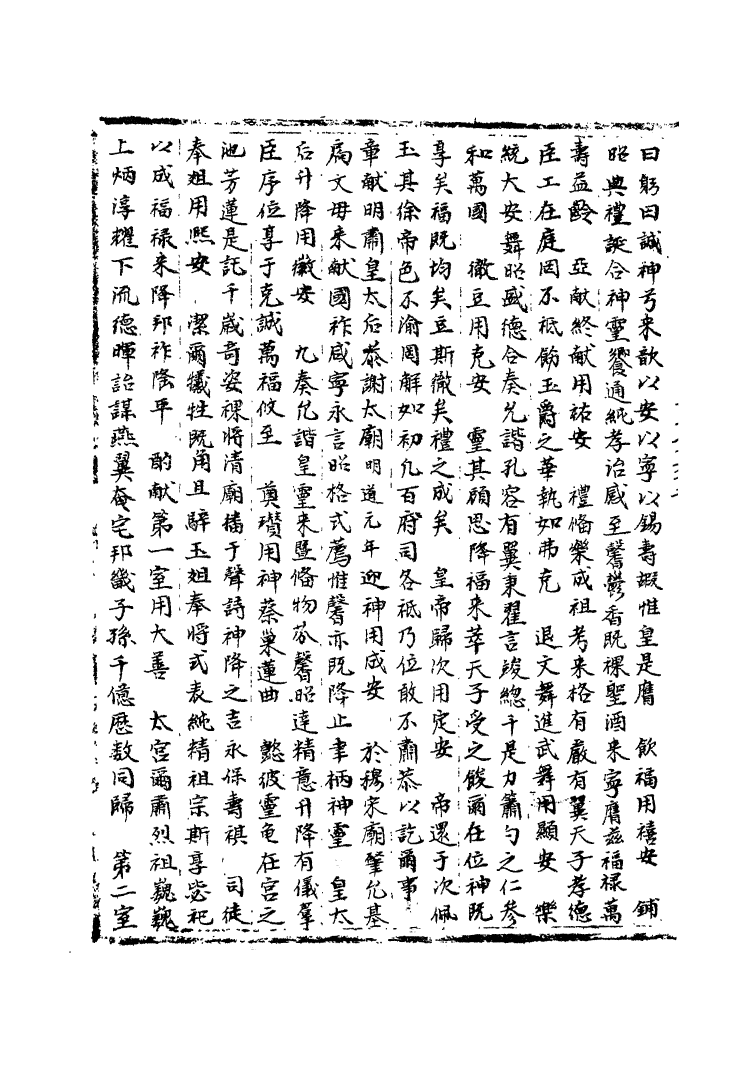 曰躬曰誠神兮来歆以安以寧以錫壽嘏惟皇是膺　飲福用禧安　鋪
昭典禮誕合神靈饗通純孝治感至馨鬱香既祼聖酒来寧膺兹福禄萬
壽益齡　亞献終献用祐安　禮俻樂成祖考来格有嚴有翼天子孝德
臣工在庭罔不祗飭玉爵之華執如弗克　退文舞進武舞用顯安　樂
統大安舞昭盛德合奏允諧孔容有翼東翟言竣緫干是力簫勺之仁參
和萬國　徹豆用克安　靈其顧思降福来萃天子受之餕爾在位神既
享矣福既均矣豆斯徹矣禮之成矣　皇帝歸次用定安　帝還于次佩
玉其徐帝色不渝罔解如初凢百府司各祗乃位敢不肅恭以訖爾事
章献明肅皇太后恭謝太廟明道元年迎神用成安　於穆宋廟肇允基
扃文毋来献國祚咸寧永言昭格式薦惟馨亦既降止聿柄神靈　皇太
后升降用徽安　九奏允諧皇靈来曁俻物苾馨昭達精意升降有儀羣
臣序位享于克誠萬福攸至　奠瓚用神蔡巢蓮曲　懿彼靈龟在宫之
池芳蓮是託千歲竒姿祼将清廟播于聲詩神降之吉永保壽祺　司徒
奉俎用煕安　潔爾犧牲既角且騂玉俎奉将式表純精祖宗斯享毖祀
以成福禄来降邦祚隆平　酌献第一室用大善　太宫爾肅烈祖巍巍
上炳淳耀下流德暉詒謀燕翼奄宅邦畿子孫千億歷数同歸　第二室